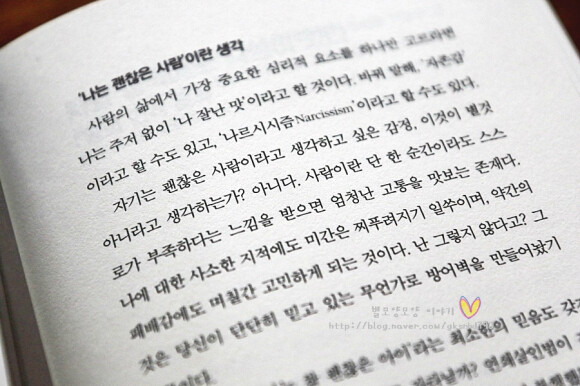 ‘나는 괜찮은 사람’이란 생각
사람의 삶에서 가장 중요한 심리적 요소를 하나만 고르라면
나는 주저 없이 ‘나 잘난 맛’이라고 할 것이다. 바꿔 말해, ‘자존감’
이라고 할 수도 있고, ‘나르시시즘Narcissism’이라고 할 수도 있다.
자기는 괜찮은 사람이라고 생각하고 싶은 감정, 이것이 별것
아니라고 생각하는가? 아니다. 사람이란 단 한 순간이라도 스스
로가 부족하다는 느낌을 받으면 엄청난 고통을 맛보는 존재다.
나에 대한 사소한 지적에도 미간은 찌푸려지기 일쑤이며, 약간의
패배감에도 며칠간 고민하게 되는 것이다. 난 그렇지 않다고? 그
것은 당신이 단단히 믿고 있는 무언가로 방어벽을 만들어놨기
별모양모양 이야기
http://blog.naver.com/
괜찮은 아이’라는 최소한의 믿음도 갖
연쇄살인범이